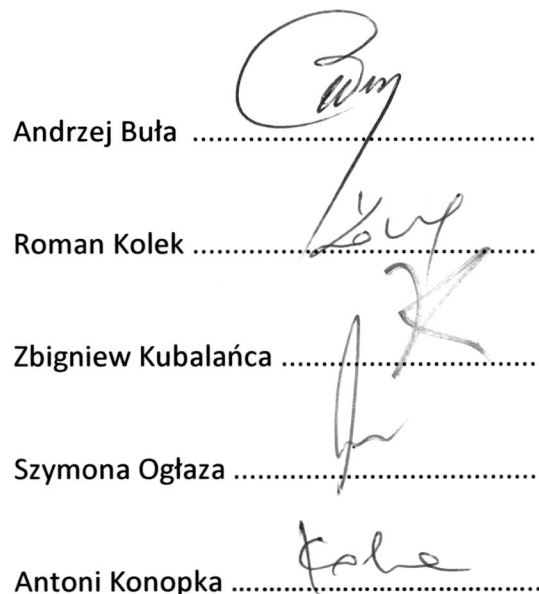 Andrzej Buła ..........................................
Roman Kolek ..........................................
Zbigniew Kubalańca ...............................
Szymona Ogłaza .....................................
Antoni Konopka .....................................